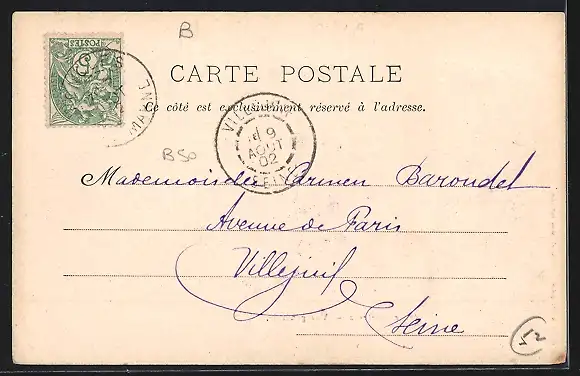 B
POSTES
CARTE POSTALE
Ce côté est exclusivement réservé à l'adresse.
VILLEJUIF
9
AOUT
02
SEINE
B50
Mademoiselle Carmen Baroudel
Avenue de Paris
Villejuif
Seine
52